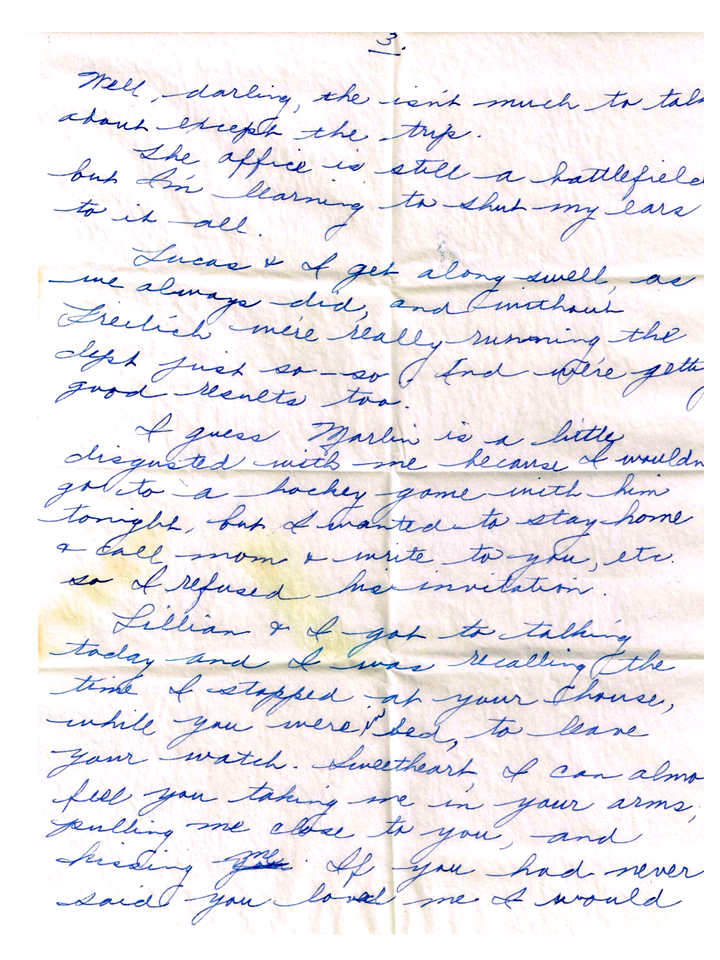 3.
Well, darling, the isn't much to talk
about except the trip.
The office is still a battlefield
but I'm learning to shut my ears
to it all.
Lucas & I get along swell, as
we always did, and without
Freilich we're really running the
dept just so-so. And we're getti
good results too.
I guess Marlin is a little
disgusted with me because I wouldn
go to a hockey game with him
tonight, but I wanted to stay home
& call mom & write to you, etc.
so I refused his invitation.
Lillian & I got to talking
today and I was recalling the
time I stopped at your house,
while you were in bed, to leave
your watch. Sweetheart, I can almo
feel you taking me in your arms,
pulling me close to you, and
kissing me. If you had never
said you loved me I would